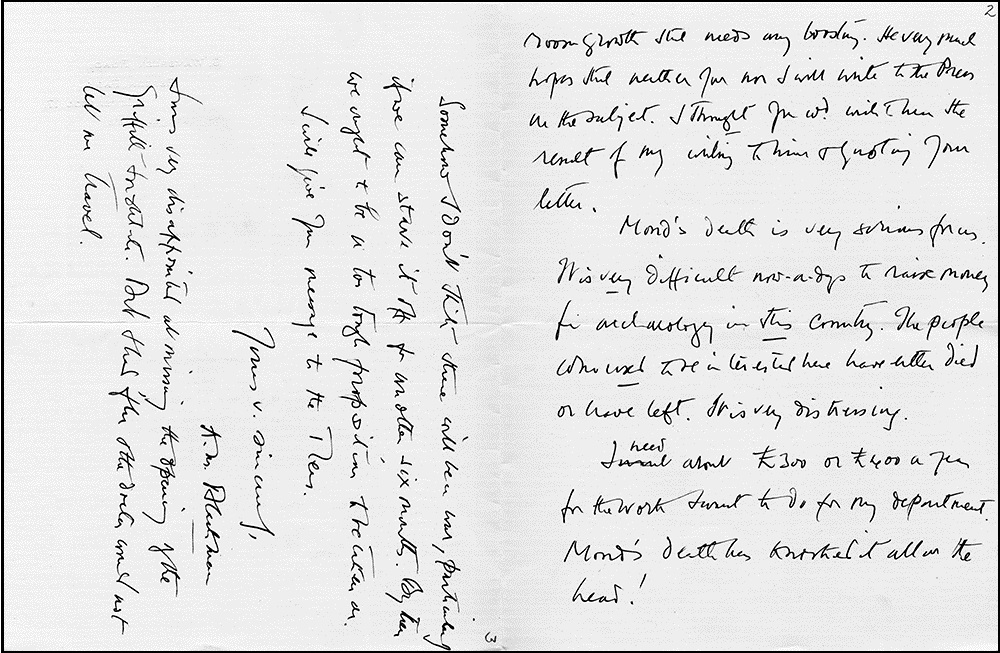 2
room growth still needs any boosting. He very much
hopes that neither you nor I will write to the Press
on the subject. I thought you wd. wish to hear the
result of my writing to him & quoting your
letter.
Mond's death is very serious for us.
It is very difficult now-a-days to raise money
for archaeology in this country. The people
who used to be interested here have either died
or have left. It is very distressing.
I need about £300 or £400 a year
for the work I want to do for my department.
Mond's death has knocked it all on the
head!
3
Somehow I don't think there will be a war, particularly
if we can stave it off for another six months. By then
we ought to be a too tough proposition to be taken on.
I will give your message to the Peers.
Yours v. sincerely,
A. M. Blackman
I was very disappointed at missing the opening of the
Griffith Institute. But the doctor would not
let me travel.